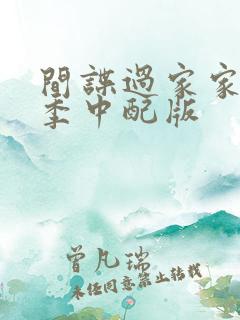 間諜過家家
季中配版
曾凡瑞
未经同意禁止转载